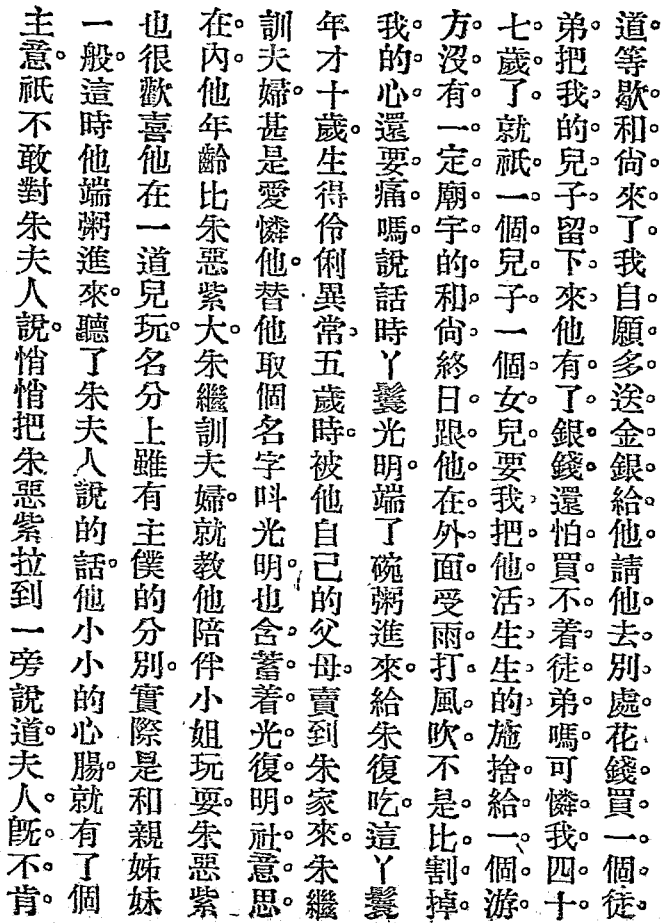 道。等歇。和尙。來。了。我。自。願。多。送。金。銀。給。他。請。他。去。別。處。花。錢。買。一。個。徒。
弟。把。我。的。兒。子。留。下。來。他。有。了。銀。錢。還。怕。買。不。着。徒。弟。嗎。可。憐。我。四。十。
七。歲。了。就。祇。一。個。兒。子。一。個。女。兒。要。我。把。他。活。生。生。的。施。捨。給。一。個。游。
方。沒。有。一。定。廟。宇。的。和。尙。終。日。跟。他。在。外。面。受。雨。打。風。吹。不。是。比。割。掉。
我。的。心。還。要。痛。嗎。說話時丫鬟光明。端了碗粥進來。給朱復吃。這丫鬟
年才十歲。生得伶俐異常、五歲時。被他自己的父母。賣到朱家來。朱繼
訓夫婦。甚是愛憐他。替他取個名字叫光明。也含。蓄。着。光。復。明。社。意。思。
在。內。他年齡比朱惡紫大。朱繼訓夫婦。就敎他陪伴小姐玩耍。朱惡紫
也很歡喜他在一道兒玩。名分上雖有主僕的分別。實際是和親姊妹
一般。這時他端粥進來。聽了朱夫人說的話。他小小的心腸。就有了個
主意。祇不敢對朱夫人說。悄悄把朱惡紫拉到一旁說道。夫。人。旣。不。肯。